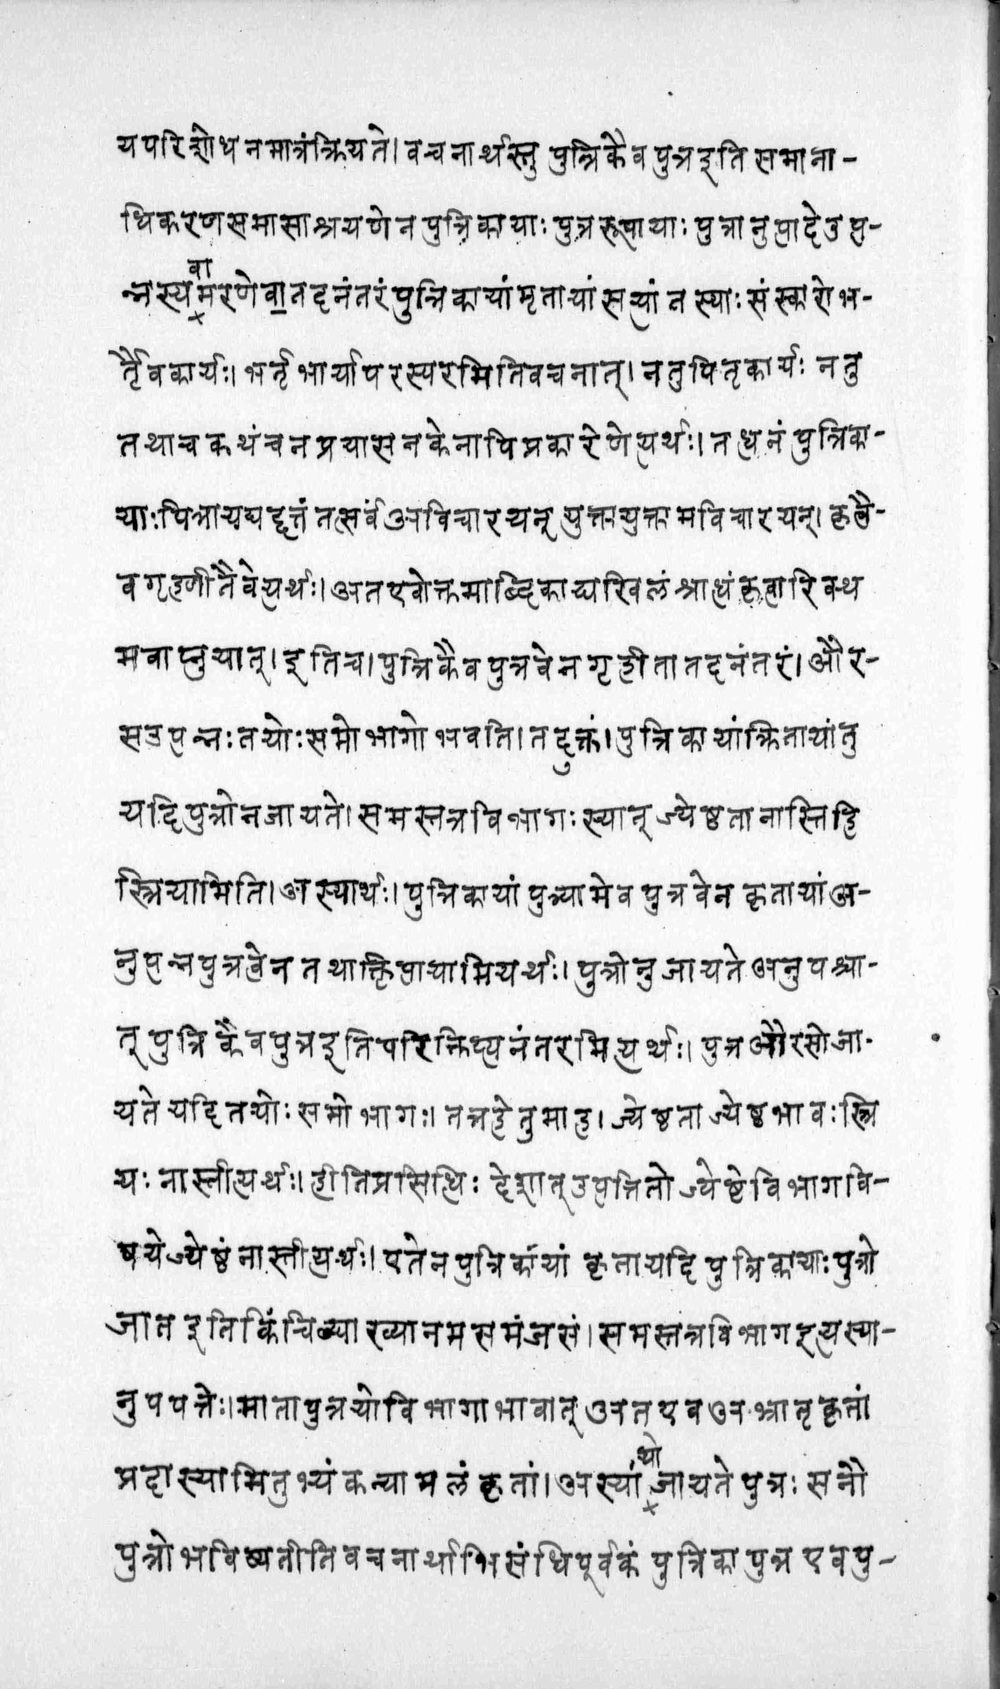 यपरिशोधनमात्रंक्रियते।वचनार्थस्तु पुत्रिकैवपुत्रइति समाना-
धिकरणसमासाश्रयणेन पुत्रिकायाः पुत्ररूपायाः पुत्रानुत्पादेउत्प-
न्नस्यवामरणेवातदनंतरंपुत्रिकायांमृतायांसत्यांतस्याःसंस्कारोभ-
र्तृैवकार्यः।भर्तृभार्यापरस्परमितिवचनात्।नतुपितृकार्यः नतु
तथाचकथंचनप्रयासनकेनापिप्रकारेणेत्यर्थः।तधनंपुत्रिका-
याःपित्रायद्यद्दत्तंतत्सर्वंअविचारयन्युक्तायुक्तामविचारयन्।कृत्वै-
वगृह्णीतैवेत्यर्थः।अतएवोक्तमाब्दिकाद्यखिलंश्राध्धंकृत्वारिक्थ
मवाप्नुयात्।इतिच।पुत्रिकैवपुत्रत्वेनगृहीतातदनंतरं।और-
सउत्पन्नःतयोःसमोभागोभवति।तदुक्तं।पुत्रिकायांक्रितायांतु
यदिपुत्रोनजायते।समस्तत्रविभागःस्यात्ज्येष्ठतानास्तिहि
स्त्रियामिति।अस्यार्थः।पुत्रिकायांपुत्र्यामेवपुत्रत्वेनकृतायांअ-
नुत्पन्नपुत्रत्वेनतथाक्लिप्तायामित्यर्थः।पुत्रोनुजायतेअनुपश्चा-
त्पुत्रिकैंवपुत्रइतिपरिक्लिप्त्यनंतरमित्यर्थः।पुत्रऔरसोजा-
यतेयदितयोःसमोभागः।तत्रहेतुमाह।ज्येष्ठताज्येष्ठभावःस्त्रि
यःनास्तीत्यर्थः।हीतिप्रसिध्धिः देशात्उत्पत्तितोज्येष्ठेविभागवि-
षयेज्येष्ठंनास्तीत्यर्थः।एतेनपुत्रिकायां कृतायदिपुत्रिकायाःपुत्रो
जातइतिकिंचिद्व्याख्यानमसमंजसं।समस्तत्रविभागइत्यस्या-
नुपपत्तेः।मातापुत्रयोविभागाभावात् अतएवअभ्रातृकृतां
प्रदास्यामितुभ्यंकन्यामलंकृतां।अस्यांयोजायतेपुत्रःसनौ
पुत्रोभविष्यतीतिवचनार्थाभिसंधिपूर्वकं पुत्रिकापुत्रएवपु-